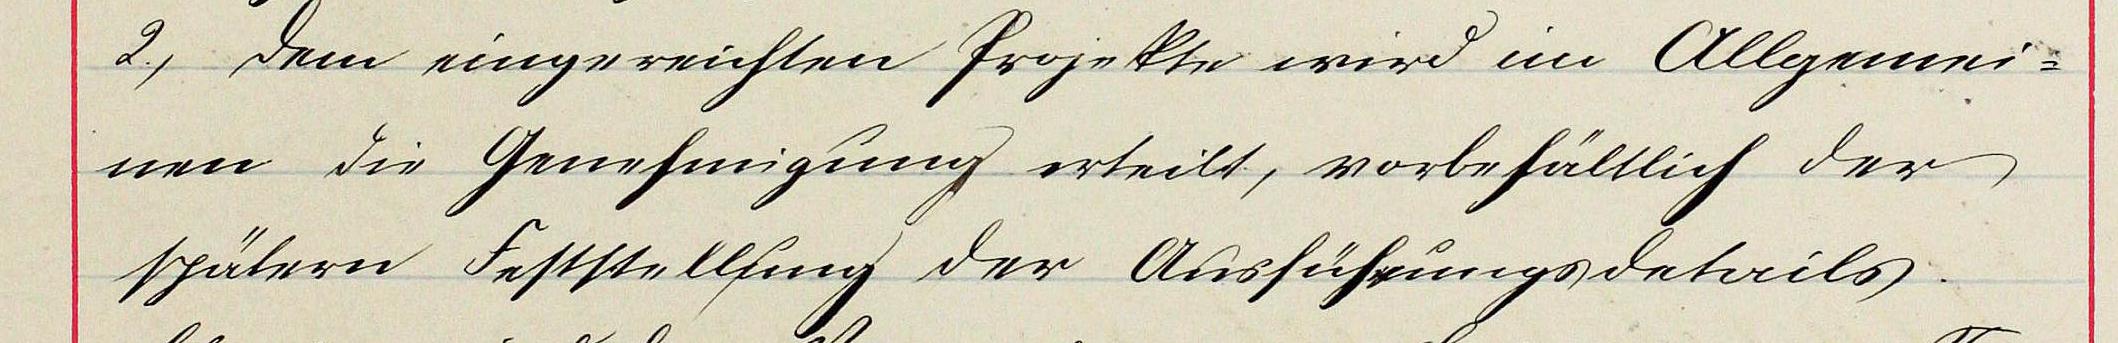 2., Dem eingereichten Projekte wird im Allgemei=
nen die Genehmigung erteilt, vorbehältlich der
spätern Feststellung der Ausführungsdetails.